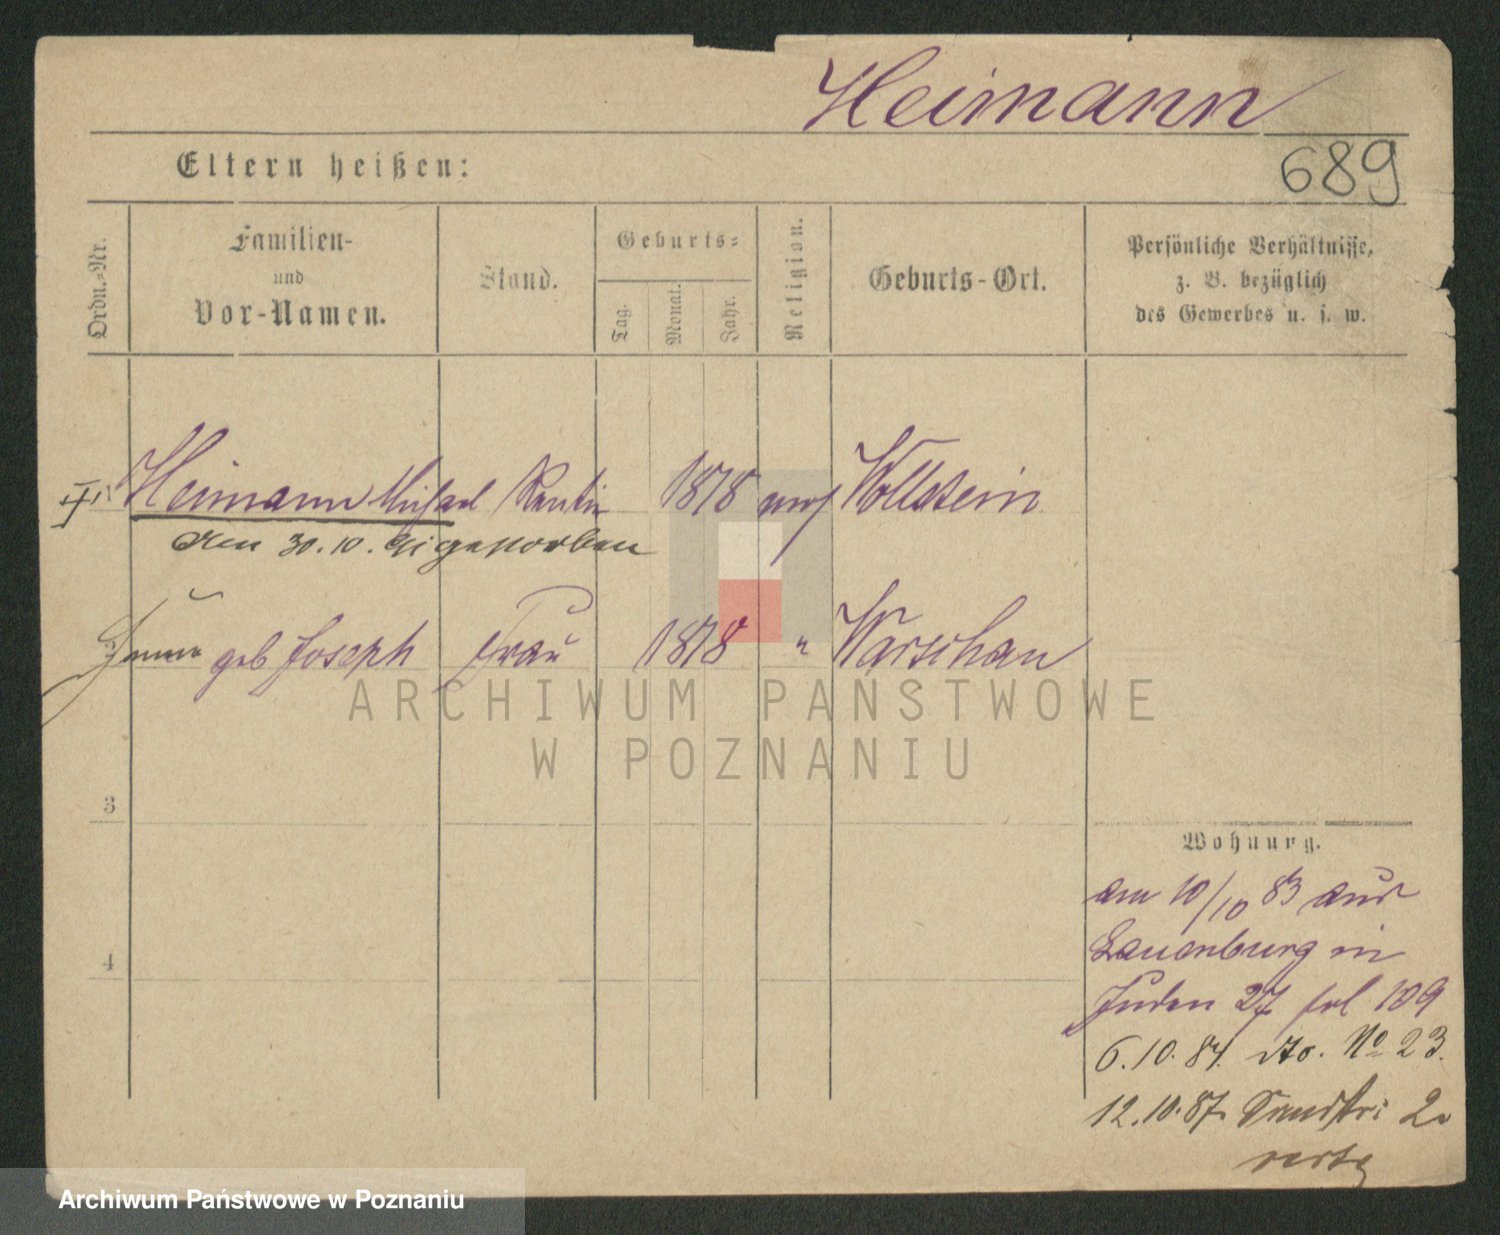 Heimann
689
Eltern heißen:
Ordn.-Nr.
Familien-
und
Vor-Namen.
Stand.
Geburts-
Tag.
Monat.
Jahr.
Religion.
Geburts-Ort.
Persönliche Verhältnisse,
z. B. bezüglich
des Gewerbes u. s. w.
Heimann Michael 1818 mos Wollstein
den 30.10. gestorben
geb Joseph Frau 1818 " Warschau
3
4
Wohnung.
am 10/10 83 aus
Lauenburg in
Juden 27 fol 109
6.10.84. dto. No 23.
12.10.87. Sandstr: 2.
verte
ARCHIWUM PAŃSTWOWE
W POZNANIU
Archiwum Państwowe w Poznaniu